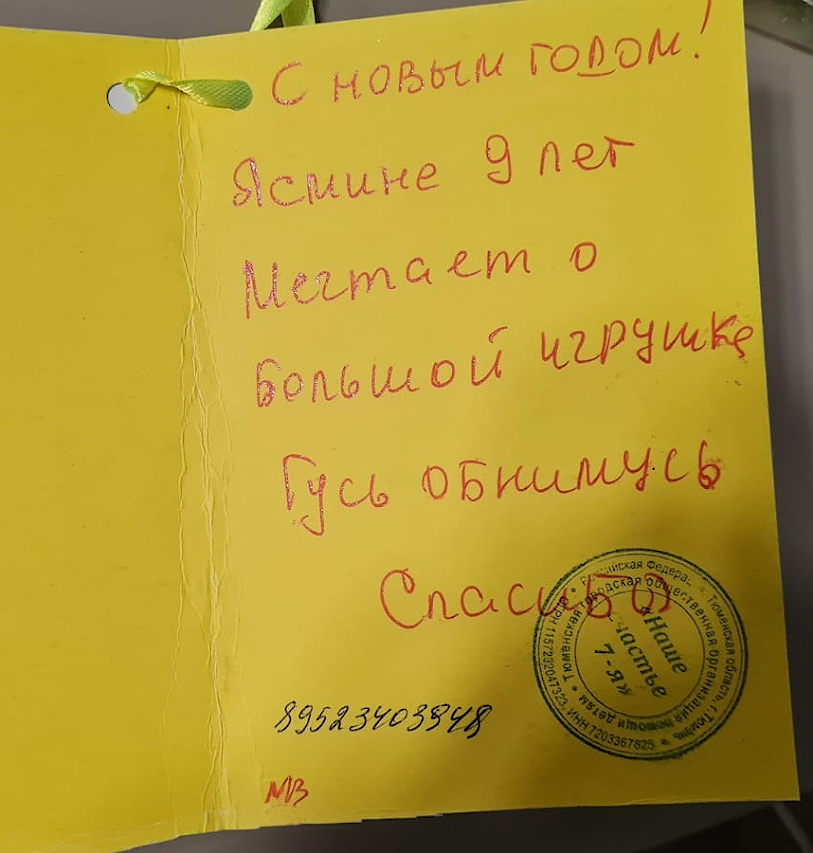 С новым годом!
Ясмине 9 лет
Мечтает о
Большой игрушке
Гусь обнимусь
Спасибо
Российская Федера- Тюменская область, г.Тюмень
Тюменская городская общественная организация помощи детям
ИНН 7203367825
«Наше
счастье
7-Я»
89523403848
МВ